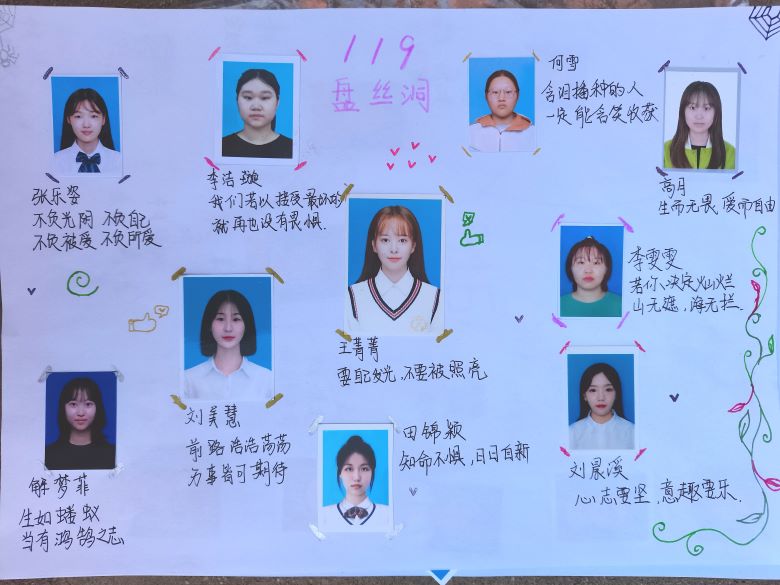 119
盘丝洞
张乐姿
不负光阴 不负自己
不负被爱 不负所爱
李洁璇
我们若以接受最坏的
就再也没有畏惧.
何雪
含泪播种的人
一定能含笑收获
高月
生而无畏,爱而自由
王菁菁
要自己发光,不要被照亮
李雯雯
若你决定灿烂
山无遮,海无拦.
刘美慧
前路浩浩荡荡
万事皆可期待
解梦菲
生如蝼蚁
当有鸿鹄之志
田锦颖
知命不惧,日日自新
刘晨溪
心志要坚,意趣要乐.